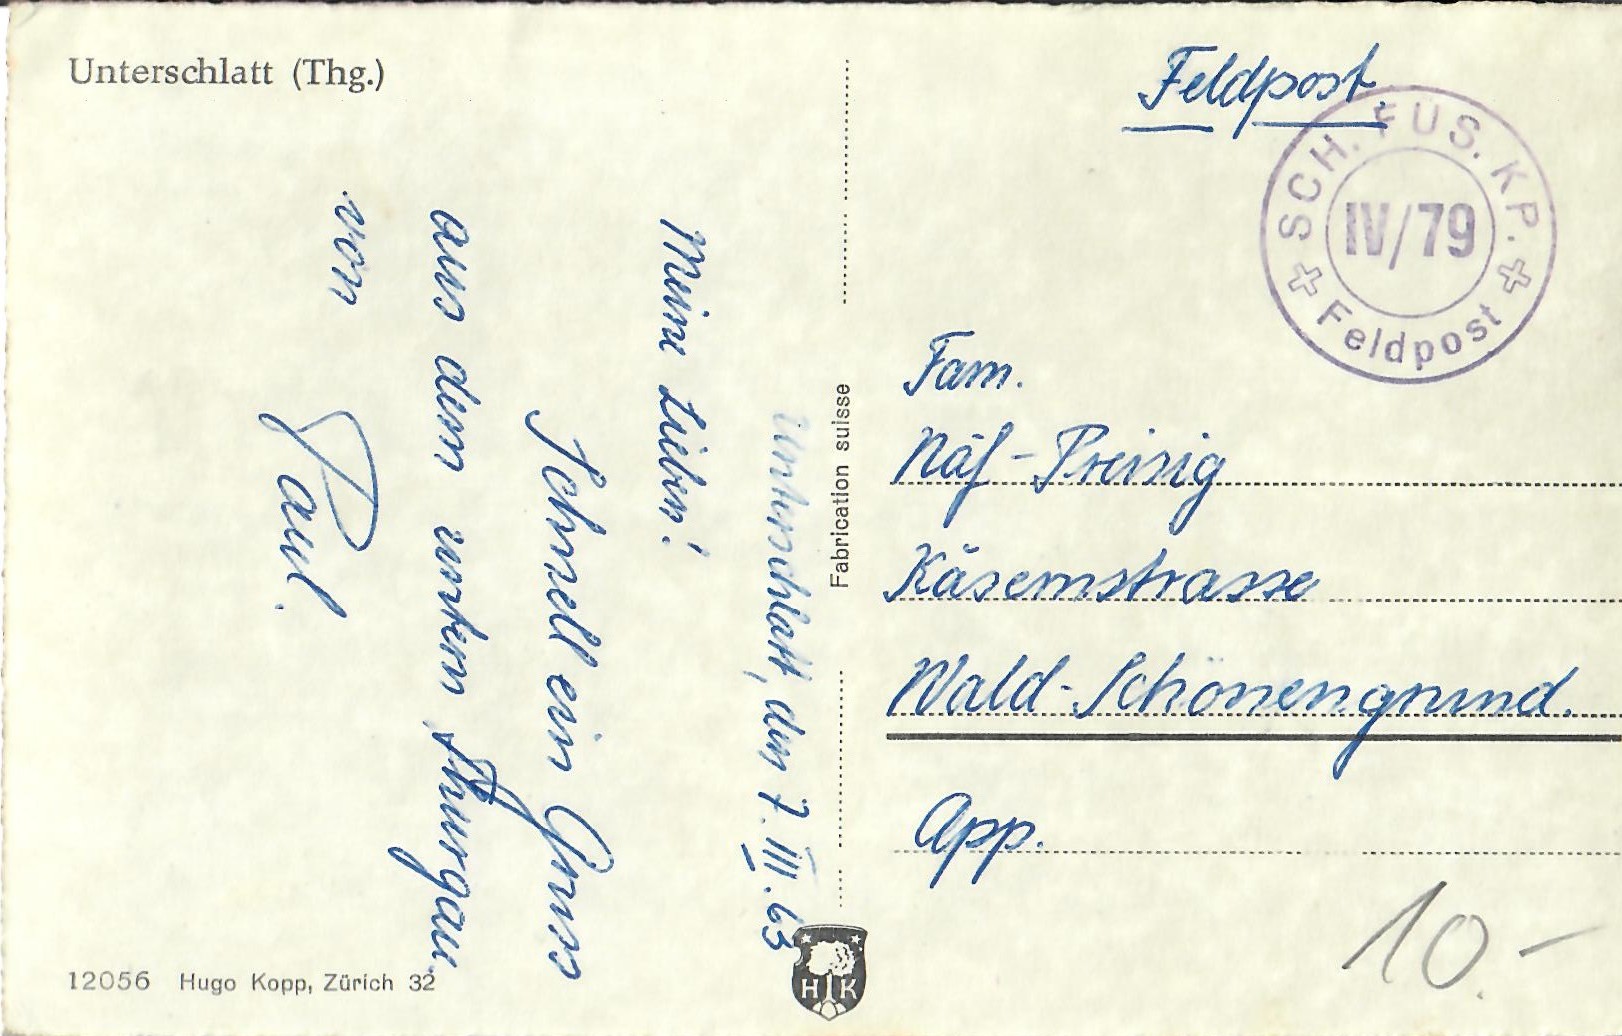 Unterschlatt (Thg.)
Unterschlatt, den 7. III. 63
Meine Lieben!
Schnell ein Gruss
aus dem untern Thurgau
von
Paul.
12056 Hugo Kopp, Zürich 32
Fabrication suisse
H K
Feldpost.
SCH. FÜS. KP.
IV/79
Feldpost
Fam.
Näf-Preisig
Käsernstrasse
Wald-Schönengrund.
App.
10.-